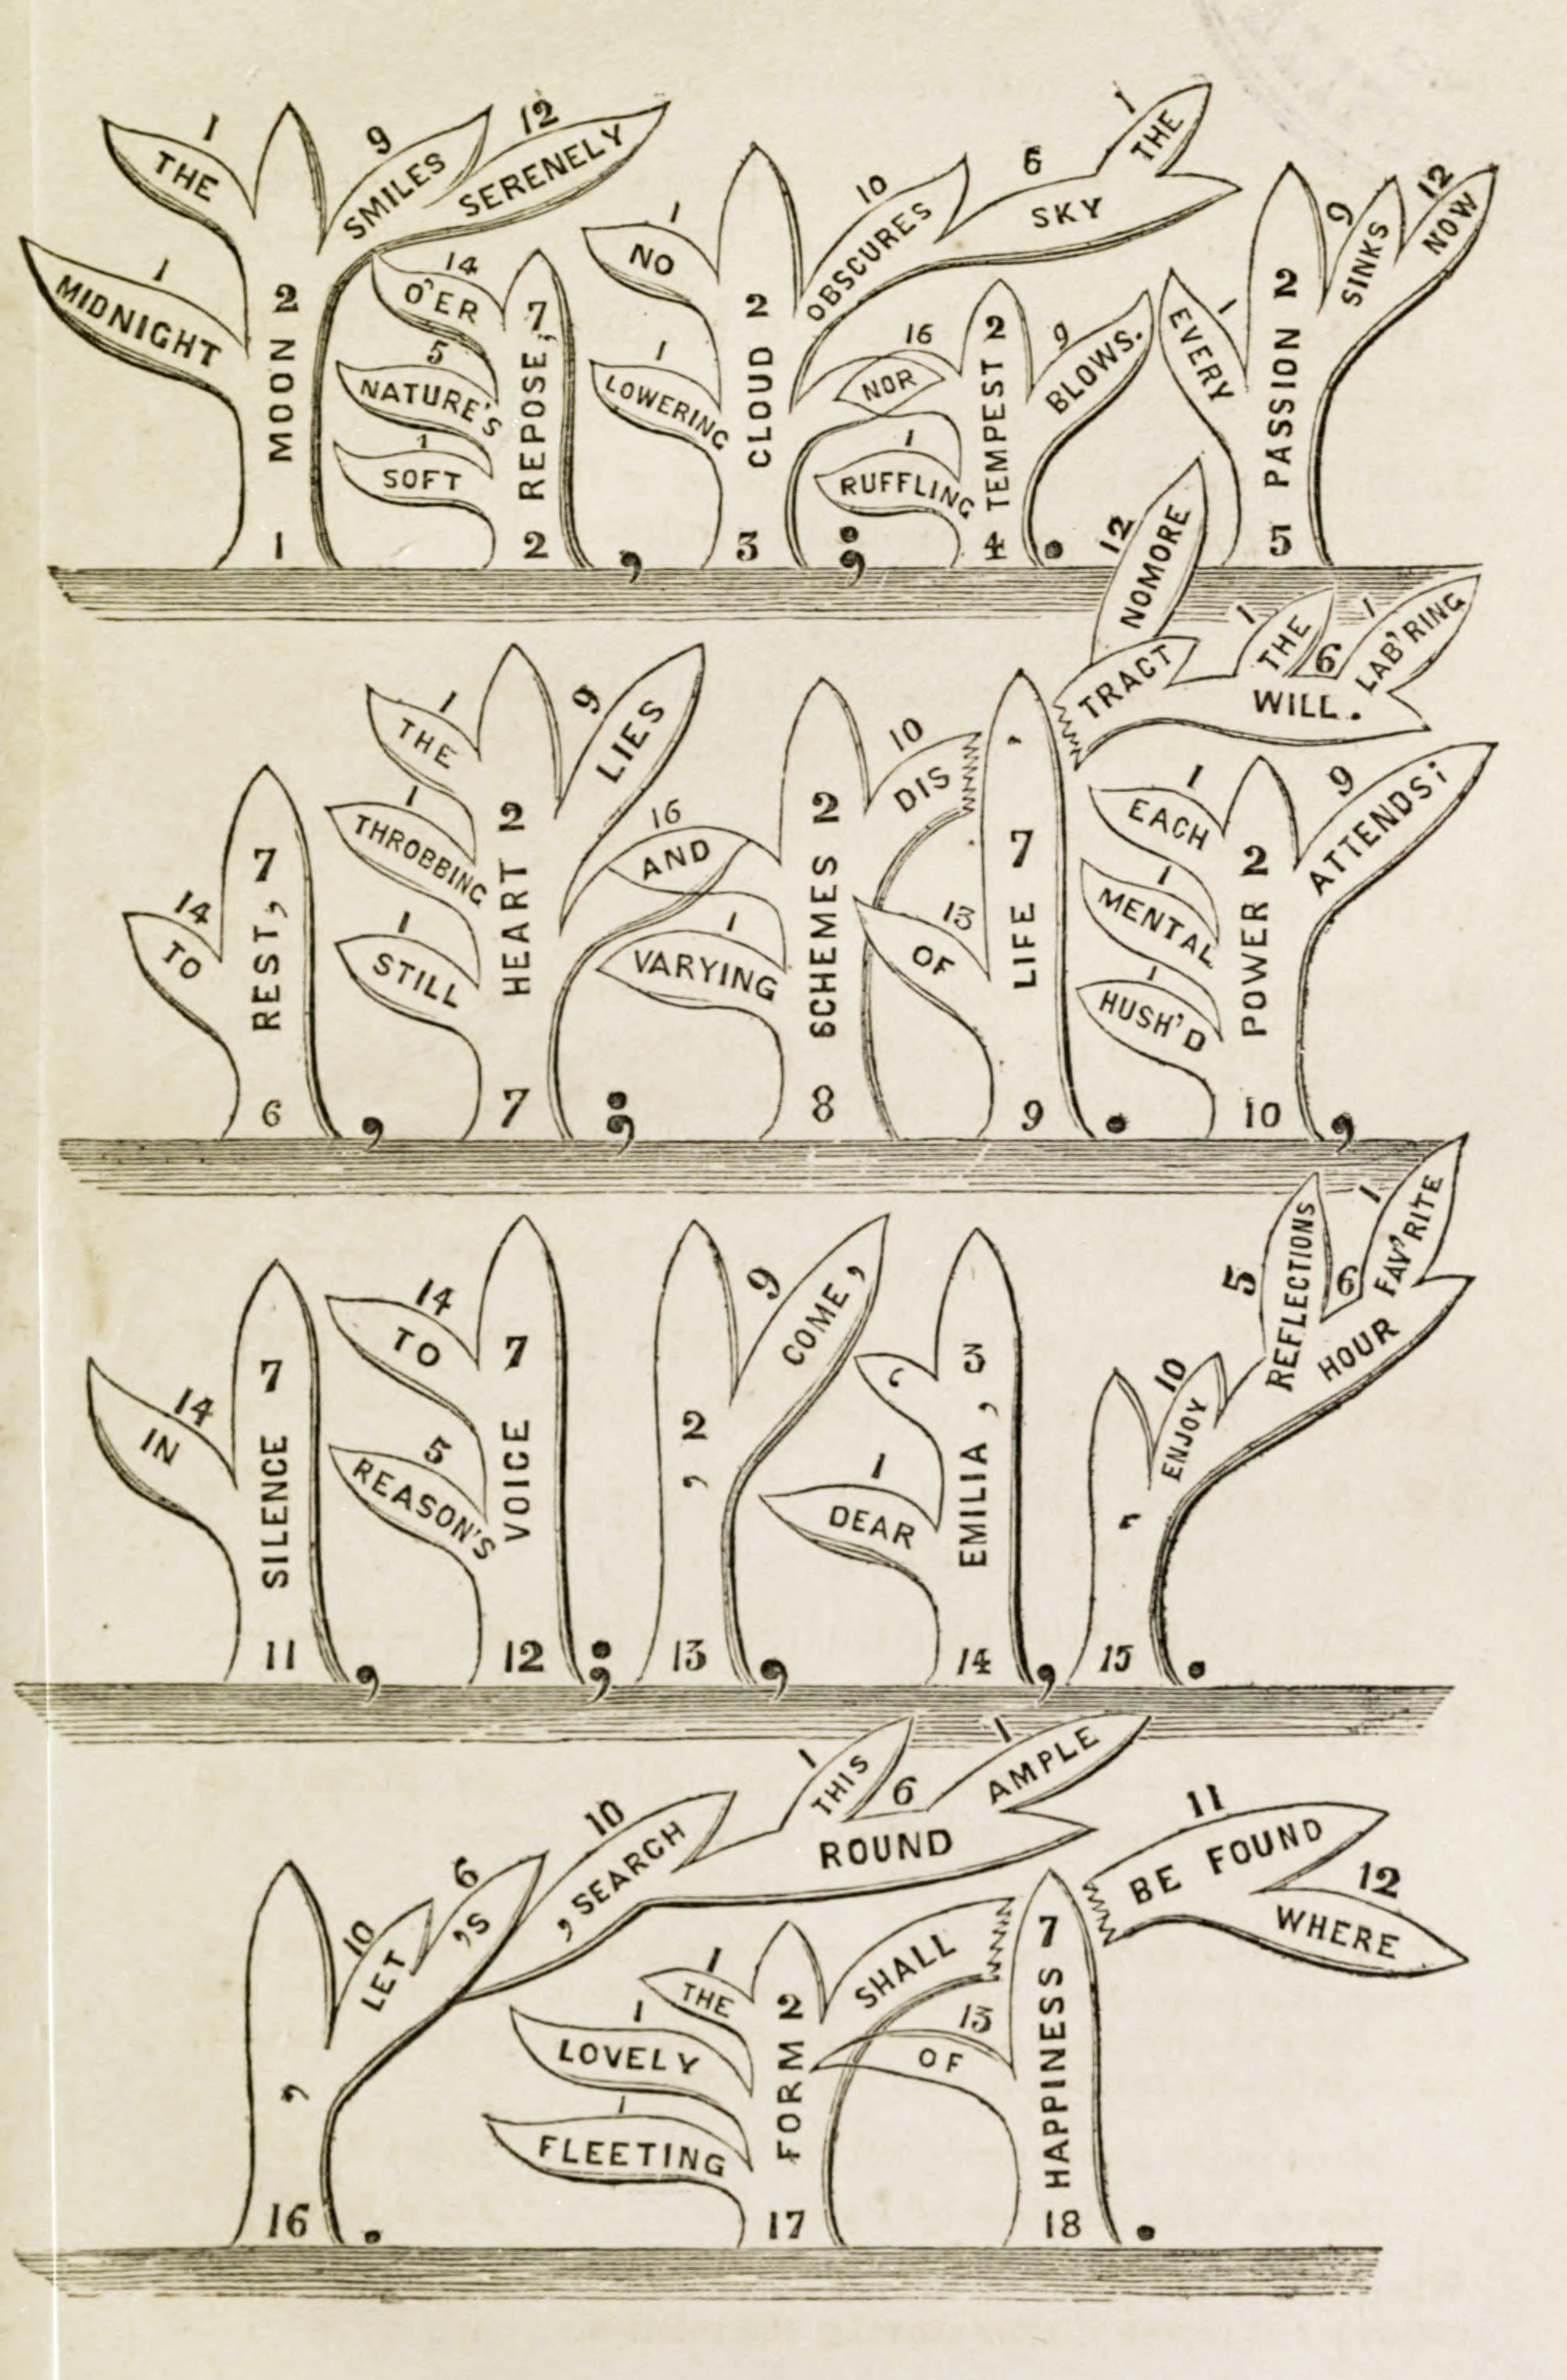 1 THE
1 MIDNIGHT
MOON 2
1
9 SMILES
12 SERENELY
14 O'ER
5 NATURE'S
1 SOFT
REPOSE, 7
2 ,
1 NO
1 LOWERING
CLOUD 2
3 ;
10 OBSCURES
6 SKY
1 THE
16 NOR
1 RUFFLING
TEMPEST 2
4 .
9 BLOWS.
1 EVERY
PASSION 2
5
9 SINKS
12 NOW
14 TO
REST, 7
6 ,
1 THE
1 THROBBING
1 STILL
HEART 2
7 ;
9 LIES
16 AND
1 VARYING
SCHEMES 2
8
10 DIS
TRACT
12 NOMORE
1 THE
6 WILL.
1 LAB'RING
13 OF
LIFE 7
9 .
1 EACH
1 MENTAL
1 HUSH'D
POWER 2
10 ,
9 ATTENDS;
14 IN
SILENCE 7
11 ,
14 TO
5 REASON'S
VOICE 7
12 ;
, 2
13 ,
9 COME,
1 DEAR
EMILIA, 3
14 ,
,
15 .
10 ENJOY
5 REFLECTIONS
6 HOUR
1 FAV'RITE
,
16 .
10 LET
6 'S
10 , SEARCH
1 THIS
6 ROUND
1 AMPLE
1 THE
1 LOVELY
1 FLEETING
FORM 2
17
SHALL
11 BE FOUND
12 WHERE
13 OF
HAPPINESS 7
18 .